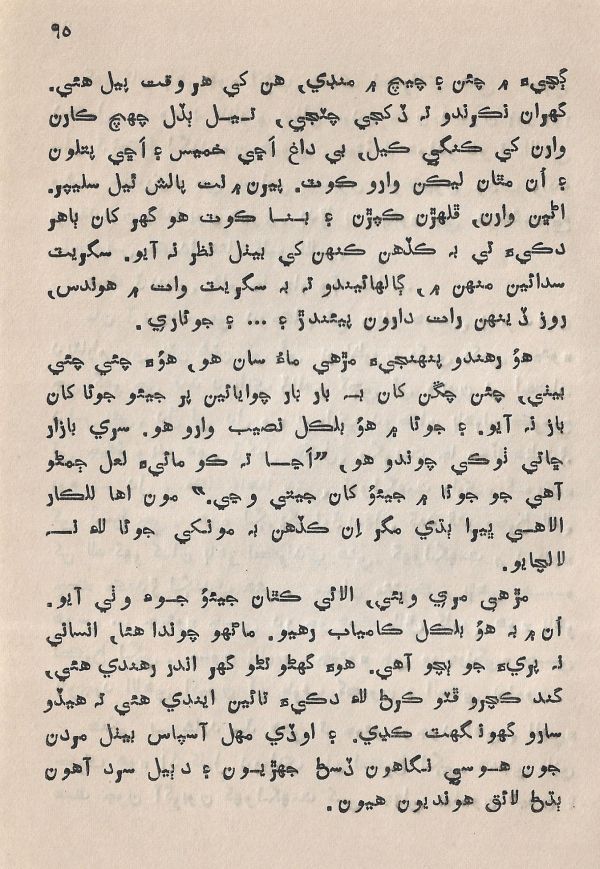 ۹۵
ڳچيءَ ۾ چئن ۽ چيچ ۾ منڊي، هن کي هر وقت پيل هئي.
گهران نڪرندو تہ ڏڪجي چٽجي، تيل ٻڌل ڇهڇ ڪارن
وارن کي ڪنگي ڪيل، بي داغ اَڇي خميس ۽ اَڇي پتلون
۽ اُن مٿان ليڪن وارو ڪوٽ. پيرن ۾ لٽ پالش ٿيل سليپر.
اڻپن وارن، ڦلهڙن ڪپڙن ۽ بنا ڪوٽ هو گهر کان ٻاهر
دڪيءَ تي بہ ڪڏهن ڪنهن کي بيٺل نظر نہ آيو. سگريٽ
سدائين منهن ۾، ڳالهائيندو تہ بہ سگريٽ وات ۾ هوندس،
روز ڏينهن رات دارون پيئندڙ ۽ ... ۽ جوئاري.
هؤ رهندو پنهنجيءَ مڙهي ماءُ سان هو، هوءَ چئي چئي
بيٺي، چئن چڱن کان بہ بار بار چوايائين پر جيٺو جوئا کان
باز نہ آيو. ۽ جوئا ۾ هؤ بلڪل نصيب وارو هو. سڄي بازار
ڇاتي ٺوڪي چوندو هو، ”اَڃا تہ ڪو مائيءَ لعل ڄمڻو
آهي جو جوئا ۾ جيٺوُ کان جيتي وڃي.“ مون اها للڪار
الاهي ڀيرا ٻڌي مگر اِن ڪڏهن بہ مونکي جوئا لاءِ نہ
لالچايو.
مڙهي مري ويئي، الائي ڪٿان جيٺوُ جوءِ وٺي آيو.
اُن ۾ بہ هؤ بلڪل ڪامياب رهيو. ماڻهو چوندا هئا، انساني
نہ پريءَ جو ٻچو آهي. هوءَ گهڻو تڻو گهر اندر رهندي هئي،
گند ڪچرو ڦٽو ڪرڻ لاءِ دڪيءَ تائين ايندي هئي تہ هيڏو
سارو گهونگهٽ ڪڍي. ۽ اوڏي مهل آسپاس بيٺل مردن
جون هوسي نگاهون ڏسڻ جهڙيون ۽ دٻيل سرد آهون
ٻڌڻ لائق هونديون هيون.